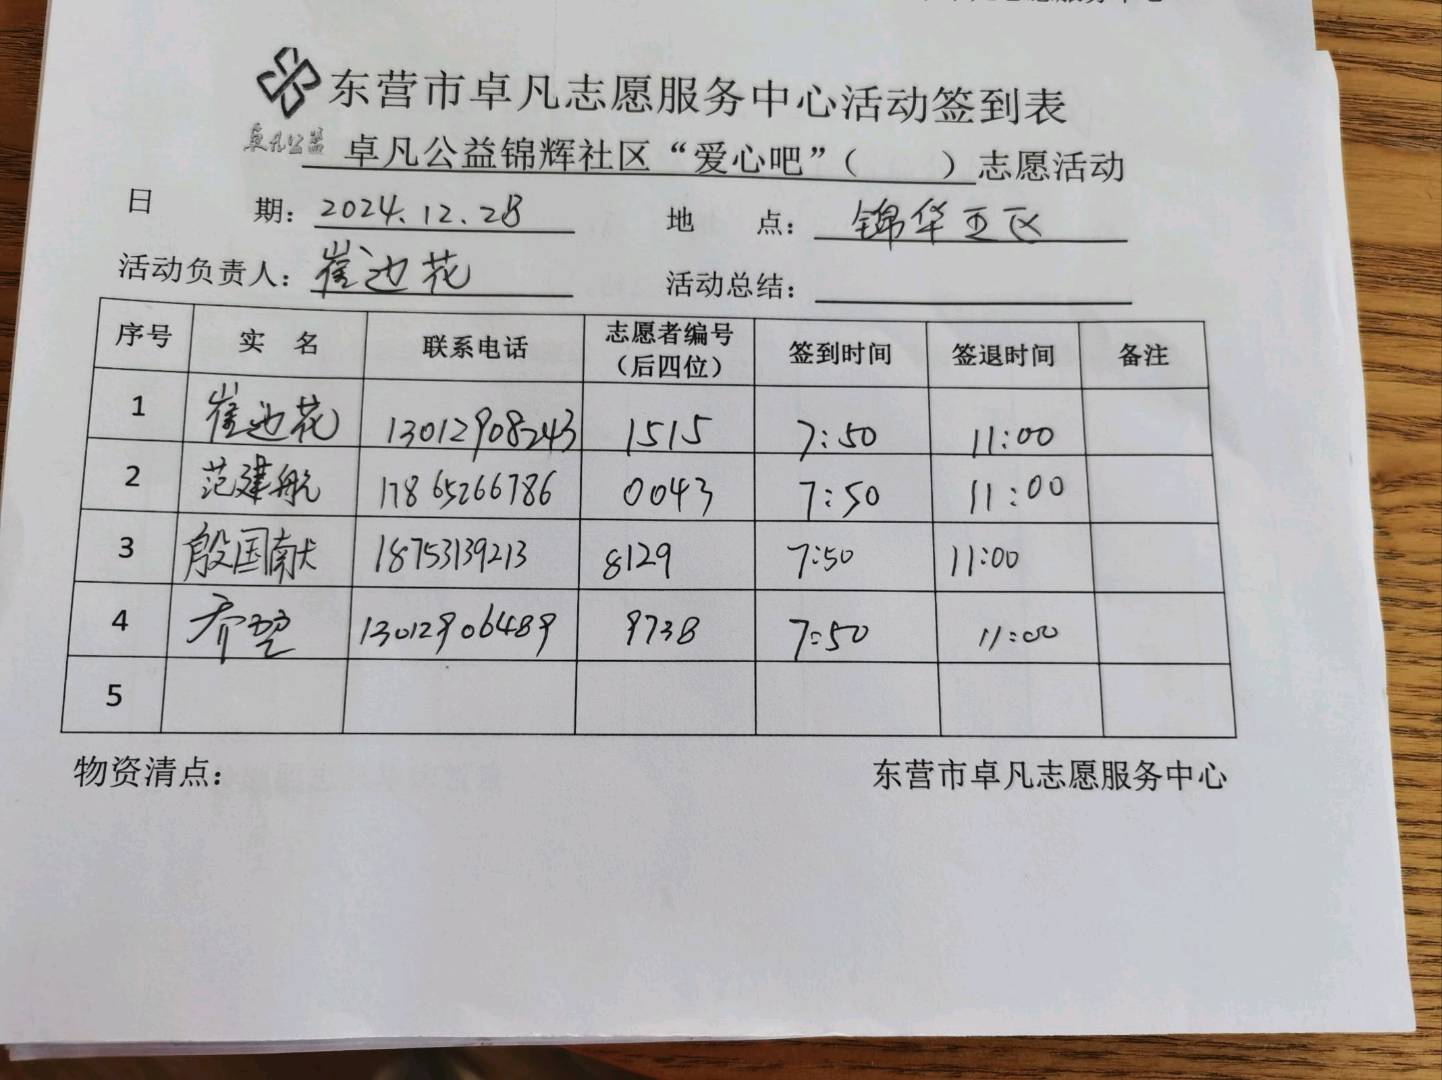 东营市卓凡志愿服务中心活动签到表
卓凡公益
卓凡公益锦辉社区“爱心吧”（ ）志愿活动
日 期：2024.12.28 地 点：锦华五区
活动负责人：崔迎花 活动总结：
序号 实 名 联系电话 志愿者编号（后四位） 签到时间 签退时间 备注
1 崔迎花 13012908243 1515 7:50 11:00
2 范建航 17865266786 0043 7:50 11:00
3 殷国献 18753139213 8129 7:50 11:00
4 乔 13012906489 9738 7:50 11:00
5
物资清点： 东营市卓凡志愿服务中心